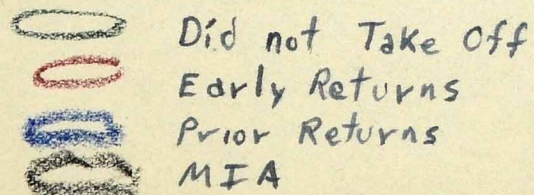 Did not Take Off
Early Returns
Prior Returns
MIA